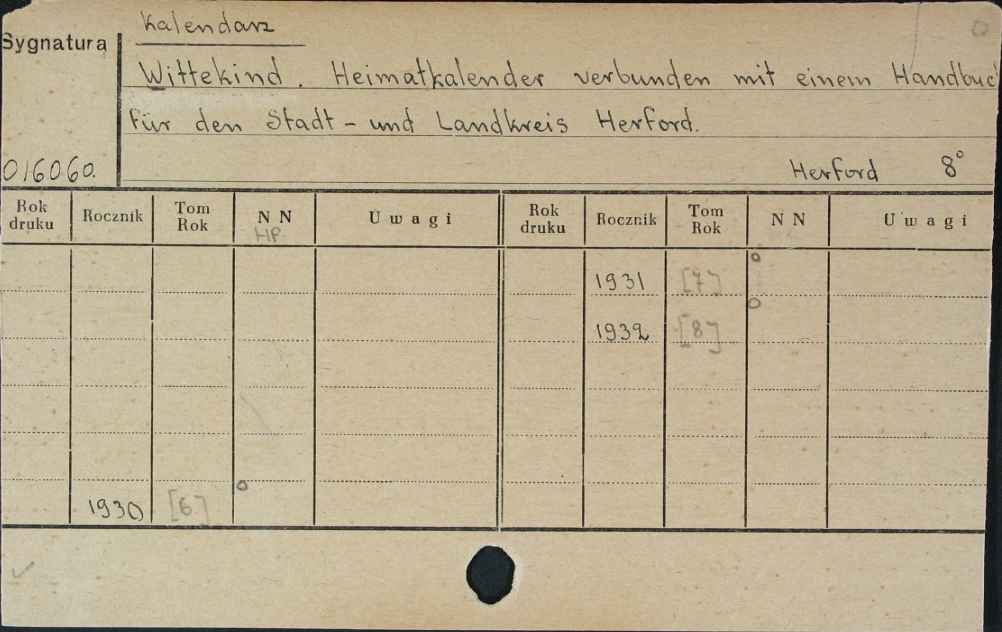 Kalendarz
Sygnatura
Wittekind. Heimatkalender verbunden mit einem Handbuc
für den Stadt- und Landkreis Herford.
016060. Herford 8°
Rok druku Rocznik Tom Rok N N U w a g i Rok druku Rocznik Tom Rok N N U w a g i
HP.
1931 [7]
1932 [8]
1930 [6]